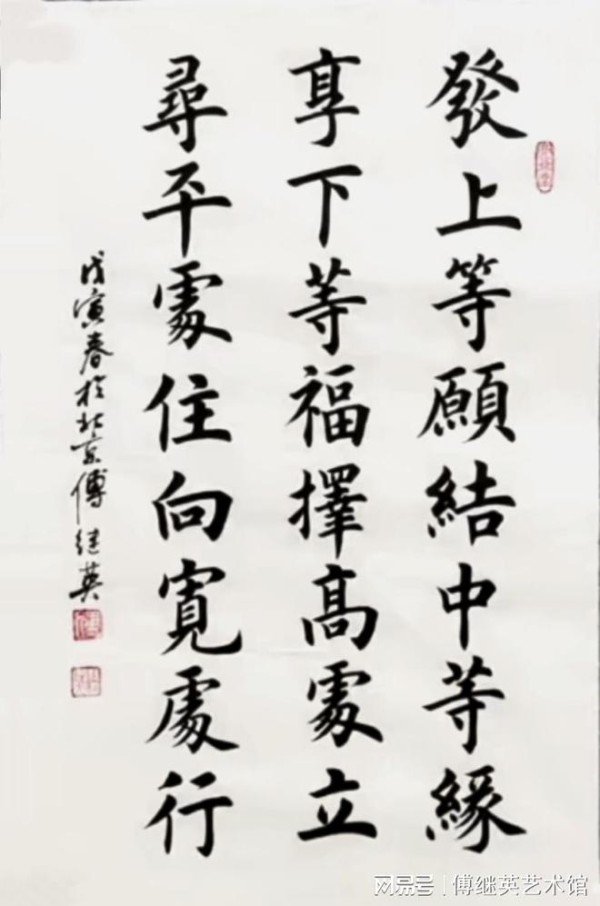 發上等願結中等緣
享下等福擇高處立
尋平處住向寬處行
戊寅春於北京傅继英
网易号 | 傅继英艺术馆